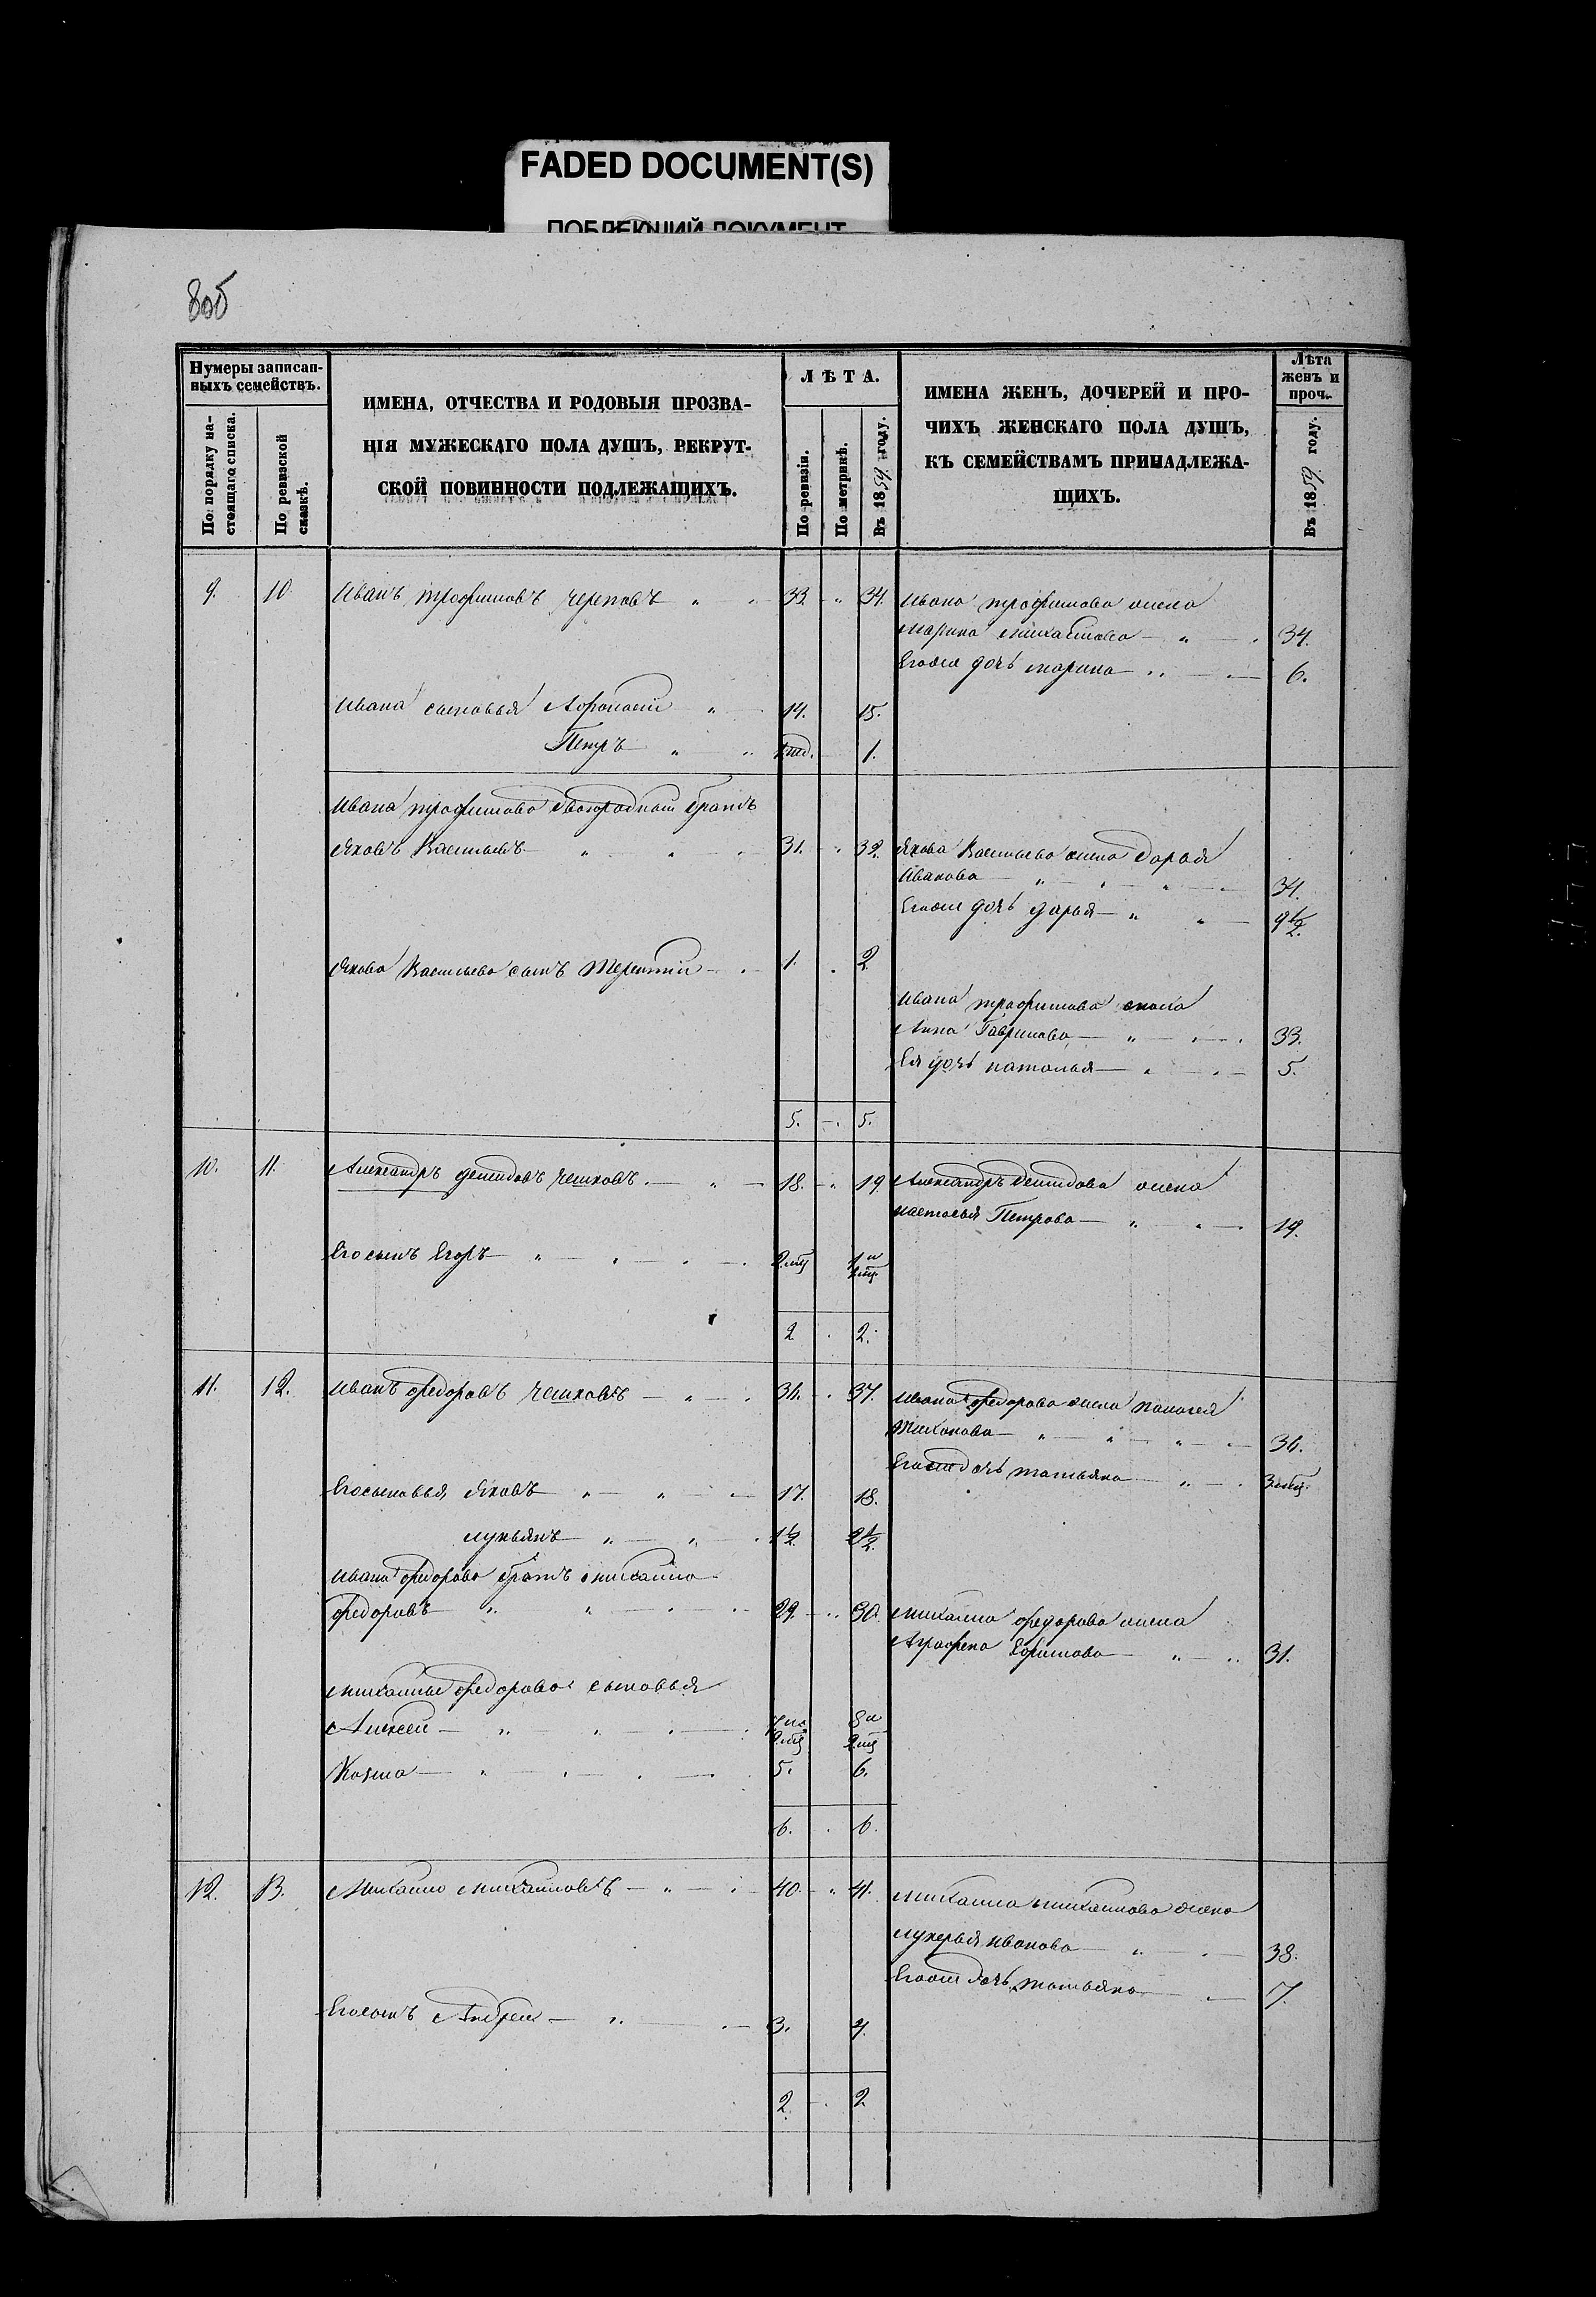 FADED DOCUMENT(S)
ПОБЛЕКШИЙ ДОКУМЕНТ
80б
Нумеры записан-
ныхъ семействъ.
По порядку на-
стоящаго списка.
По ревизской
сказкѣ.
ИМЕНА, ОТЧЕСТВА И РОДОВЫЯ ПРОЗВА-
НІЯ МУЖЕСКАГО ПОЛА ДУШЪ, РЕКРУТ-
СКОЙ ПОВИННОСТИ ПОДЛЕЖАЩИХЪ.
ЛѢТА.
По ревизіи.
По метрикѣ.
Въ 1859 году.
ИМЕНА ЖЕНЪ, ДОЧЕРЕЙ И ПРО-
ЧИХЪ ЖЕНСКАГО ПОЛА ДУШЪ,
КЪ СЕМЕЙСТВАМЪ ПРИНАДЛЕЖА-
ЩИХЪ.
Лѣта
женъ и
проч.
Въ 1859 году.
9. 10 Иванъ Трофимовъ Череповъ 33. 34. Ивана Трофимова жена
Марина Михайлова 34.
Егоже дочь Марина 6.
Ивана сыновья Афонасій 14. 15.
Петръ 1.
Ивана Трофимова двоюродной братъ
Яковъ Васильевъ 31. 32. Якова Васильева жена Дарья
Иванова 34.
Егоже дочь Дарья 9½.
Якова Васильева сынъ Терентій 1. 2.
Ивана Трофимова сноха
Анна Гаврилова 33.
Ея дочь Наталья 5.
5. 5.
10. 11. Александръ Демидовъ Чешковъ. 18. 19. Александръ Демидова жена
Настасья Петрова 19.
Его сынъ Егоръ 2 мц 1 и
2 мц.
2 2.
11. 12. Иванъ Федоровъ Чешковъ 36. 37. Ивана Федорова жена Пелагея
Тихонова 36.
Егоже дочь Татьяна 3 мц.
Его сыновья Яковъ 17. 18.
Лукьянъ 1½. 2½.
Ивана Федорова братъ Михайла
Федоровъ 29. 30. Михайла Федорова жена
Аграфена Ефимова 31.
Михайлы Федорова сыновья
Алексей 7 и 8 и
2 мц 2 мц
Козма 5. 6.
6. 6.
12. 13. Михайло Михайловъ 40. 41. Михайла Михайлова жена
Лукерья Иванова 38.
Егоже дочь Татьяна 7.
Его сынъ Андрей 3. 4.
2. 2